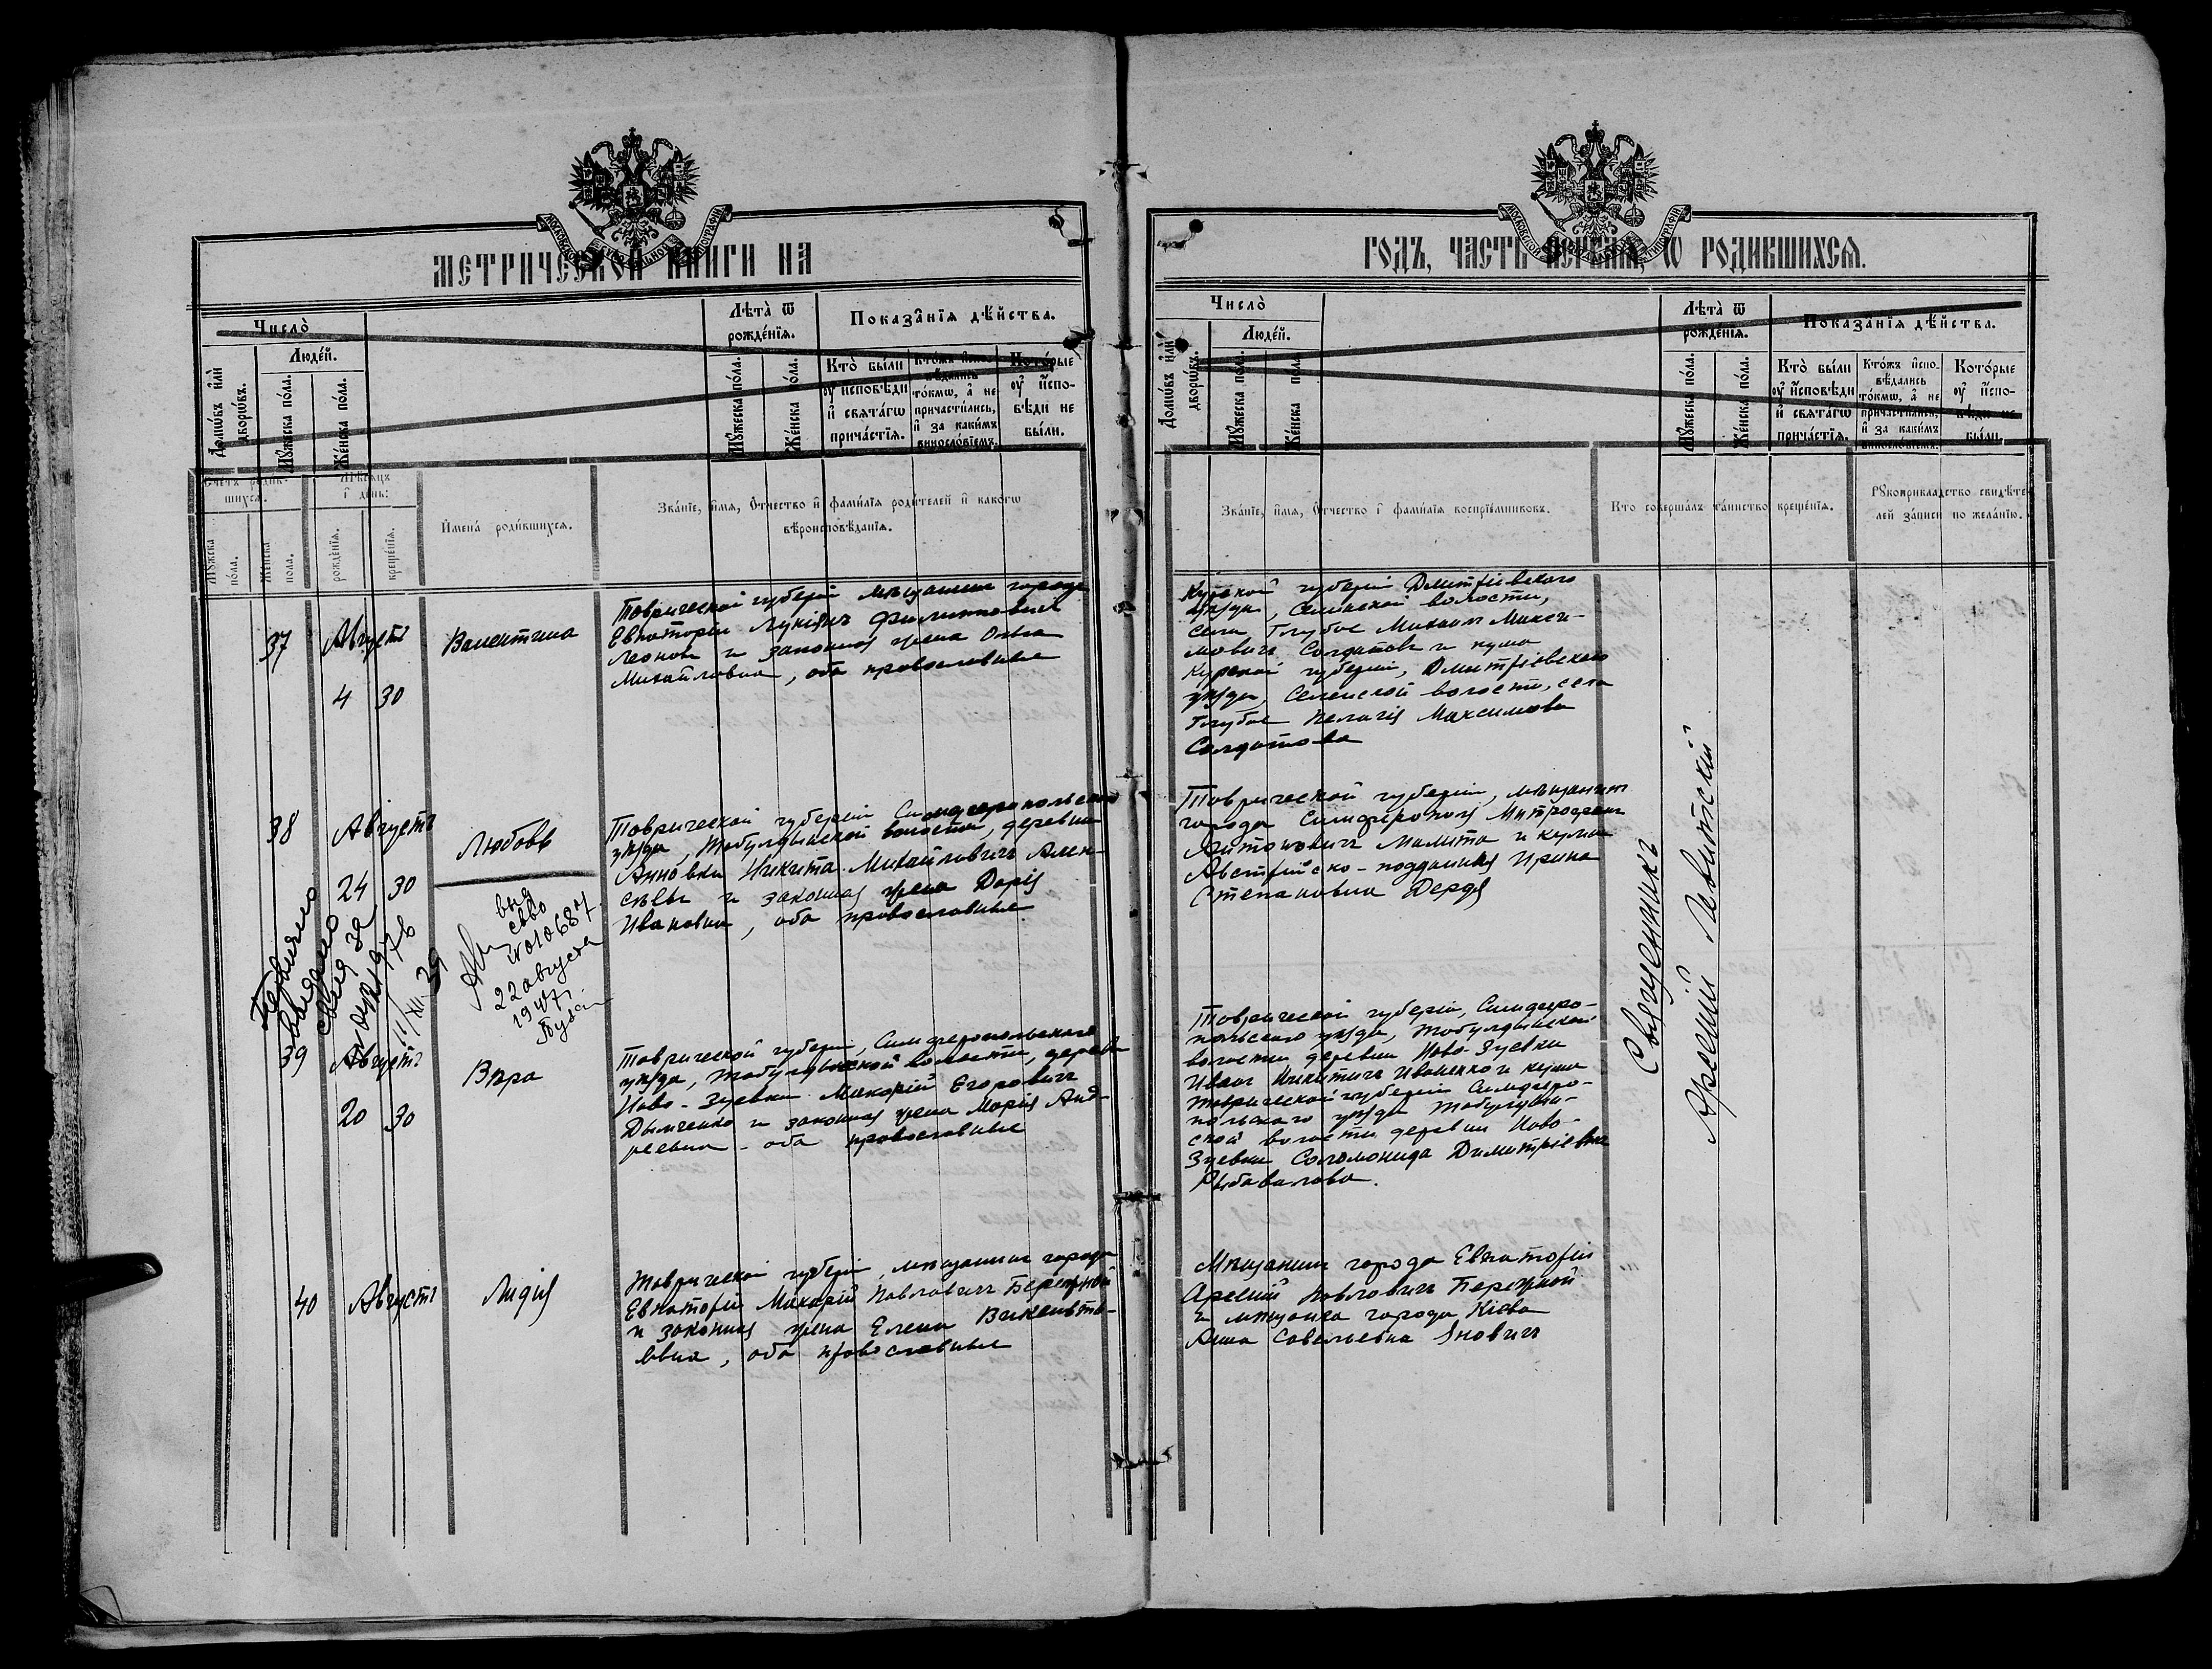 МЕТРИЧЕСКОЙ КНИГИ НА
Число̀
Домѡ́въ и҆лѝ дворѡ́въ.
Люде́й.
Мꙋ́жеска по́ла.
Же́нска по́ла.
Лѣта̀ ѿ рожде́нїѧ.
Мꙋ́жеска по́ла.
Же́нска по́ла.
Показа̑нїѧ дѣ́йства.
Кто̀ бы́ли ᲂу҆ и҆́сповѣди и҆ свѧта́гѡ прича́стїѧ.
Кто́жъ и҆спо-
вѣ́дались то́кмѡ, а҆ не причасти́лись, и҆ за каки́мъ винослов́їемъ.
Кото́рые ᲂу҆ и҆́спо-
вѣди не бы́ли.
Счетъ родив-
шихся.
Мѣсяцъ и день:
Имена̀ родившихся.
Зва́нїе, и҆́мѧ, ѻ҆́тчество и҆ фами́лїѧ роди́телей и҆ како́гѡ
вѣроисповѣ́данїѧ.
Мужеска пола.
Женска пола.
рожде́нїѧ.
креще́нїѧ.
37 Августъ Валентина
4 30
Таврической губерніи мѣщанинъ города
Евпаторіи Лукіянъ Филипповичъ
Леоновъ и законная жена Ольга
Михайловна, оба православные
38 Августъ Любовь
24 30
Таврической губерніи Симферопольскаго
уѣзда, Табулдынской волости, деревни
Анновки Никита Михайловичъ Алек-
сѣевъ и законная жена Дарія
Ивановна, оба православные
выд
св-во
№010687
22 августа
1947 г.
39 Августъ Вѣра
20 30
Таврической губерніи, Симферопольскаго
уѣзда, Табулдынской волости, деревни
Ново-Зуевки Макарій Егоровичъ
Дымченко и законная жена Марія Анд-
реевна - оба православные
40 Августъ Лидія
Таврической губерніи, мѣщанинъ города
Евпаторіи Макарій Павловичъ Бережной
и законная жена Елена Викентье-
вна, оба православные
ГОДЪ, ЧАСТЬ ПЕРВАЯ, Ѡ РОДИВШИХСЯ.
Число̀
Домѡ́въ и҆лѝ дворѡ́въ.
Люде́й.
Мꙋ́жеска пола.
Же́нска пола.
Лѣта̀ ѿ рожде́нїѧ.
Мꙋ́жеска по́ла.
Же́нска по́ла.
Показа̑нїѧ дѣ́йства.
Кто̀ бы́ли ᲂу҆ и҆́сповѣди и҆ свѧта́гѡ прича́стїѧ.
Кто́жъ и҆спо-
вѣ́дались то́кмѡ, а҆ не причасти́лись, и҆ за каки́мъ винослов́їемъ.
Кото́рые ᲂу҆ и҆́спо-
вѣди не бы́ли.
Зва́нїе, и҆́мѧ, ѻ҆́тчество и҆ фами́лїѧ воспрїе́мниковъ.
Кто соверша́лъ та́инство креще́нїѧ.
Рꙋкоприкла́дство свидѣ́те-
лей за́писи по жела́нїю.
Курской губерніи Дмитріевскаго
уѣзда, Селинской волости,
села Глубое Михаилъ Макси-
мовичъ Солдатовъ и кума
Курской губерніи, Дмитріевскаго
уѣзда, Селинской волости, села
Глубое Пелагія Максимова
Солдатова
Таврической губерніи, мѣщанинъ
города Симферополя Митрофанъ
Антоновичъ Мамота и кума
Австрійско-подданная Ирина
Степановна Дердя
Таврической губерніи, Симферо-
польскаго уѣзда, Табулдынской
волости деревни Ново-Зуевки
Иванъ Никитичъ Иваненко и кума
Таврической губерніи Симферо-
польскаго уѣзда Табулдын-
ской волости деревни Ново-
Зуевки Соломонида Димитріевна
Рыбавалова.
Мѣщанинъ города Евпаторіи
Арсеній Павловичъ Бережной
и мѣщанка города Кіева
Анна Савельевна Яновичъ
Священникъ
Арсеній Левитскій